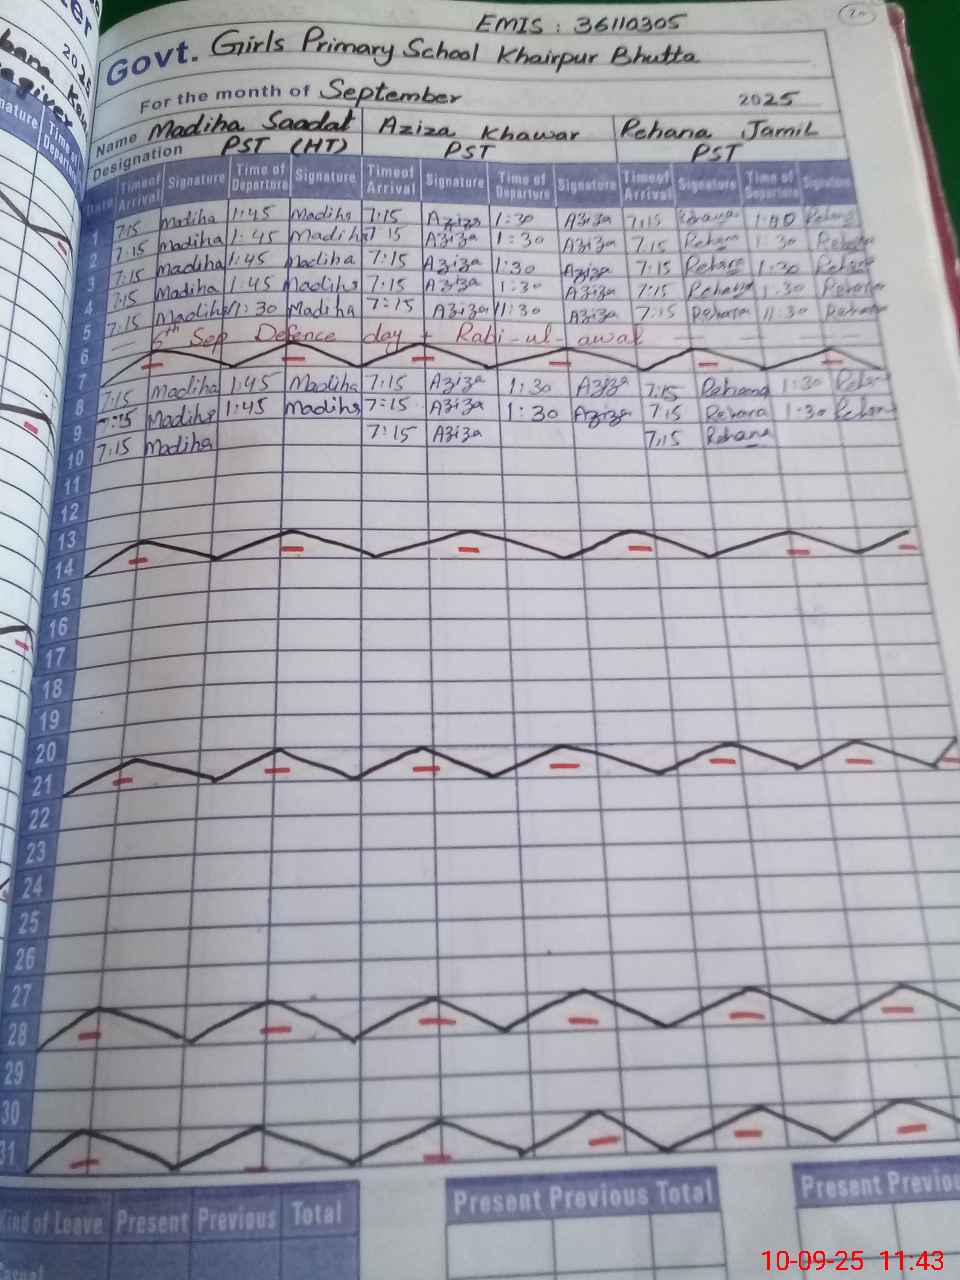 2025
EMIS : 36110305
Govt. Girls Primary School Khairpur Bhutta
For the month of September 2025
Name Madiha Saadat Aziza Khawar Rehana Jamil
Designation PST (HT) PST PST
Date Time of Arrival Signature Time of Departure Signature Time of Arrival Signature Time of Departure Signature Time of Arrival Signature Time of Departure Signature
1 7:15 Madiha 1:45 Madiha 7:15 Aziza 1:30 Aziza 7:15 Rehana Rehana
2 7:15 Madiha 1:45 Madiha 7 15 Aziza 1:30 Aziza 7:15 Rehana 1:30 Rehana
3 7:15 Madiha 1:45 Madiha 7:15 Aziza 1:30 Aziza 7:15 Rehana 1:30 Rehana
4 7:15 Madiha 1:45 Madiha 7:15 Aziza 1:30 Aziza 7:15 Rehana 1:30 Rehana
5 7:15 Madiha 11:30 Madiha 7:15 Aziza 11:30 Aziza 7:15 Rehana 11:30 Rehana
6 6th Sep Defence day + Rabi-ul-awal
7
8 7:15 Madiha 1:45 Madiha 7:15 Aziza 1:30 Aziza 7:15 Rehana 1:30 Rehana
9 7:15 Madiha 1:45 Madiha 7:15 Aziza 1:30 Aziza 7:15 Rehana 1:30 Rehana
10 7:15 Madiha 7:15 Aziza 7:15 Rehana
11
12
13
14
15
16
17
18
19
20
21
22
23
24
25
26
27
28
29
30
31
Kind of Leave Present Previous Total Present Previous Total Present
Casual
10-09-25 11:43